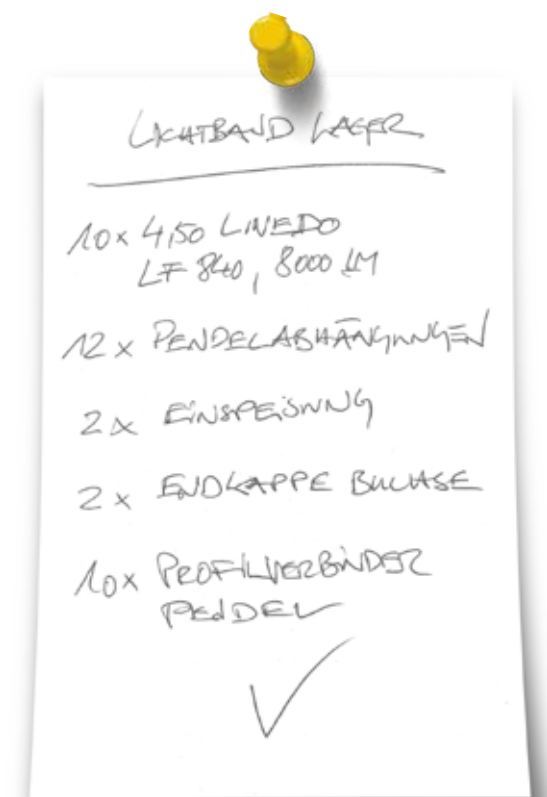 LICHTBAND LAGER
10x 4,50 LINEDO
LF 840, 8000 LM
12x PENDELABHÄNGUNGEN
2x EINSPEISUNG
2x ENDKAPPE BUCHSE
10x PROFILVERBINDER
PENDEL